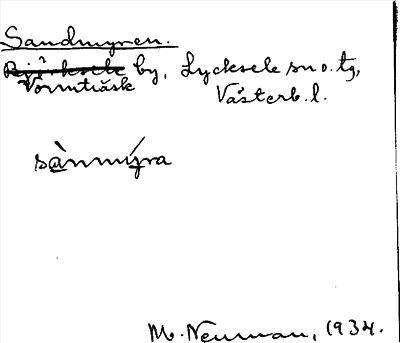 Sandmyren.
Björksele by, Lycksele sn o. tg,
Vormträsk Västerb. l.
sànmýra
M. Neuman, 1934.